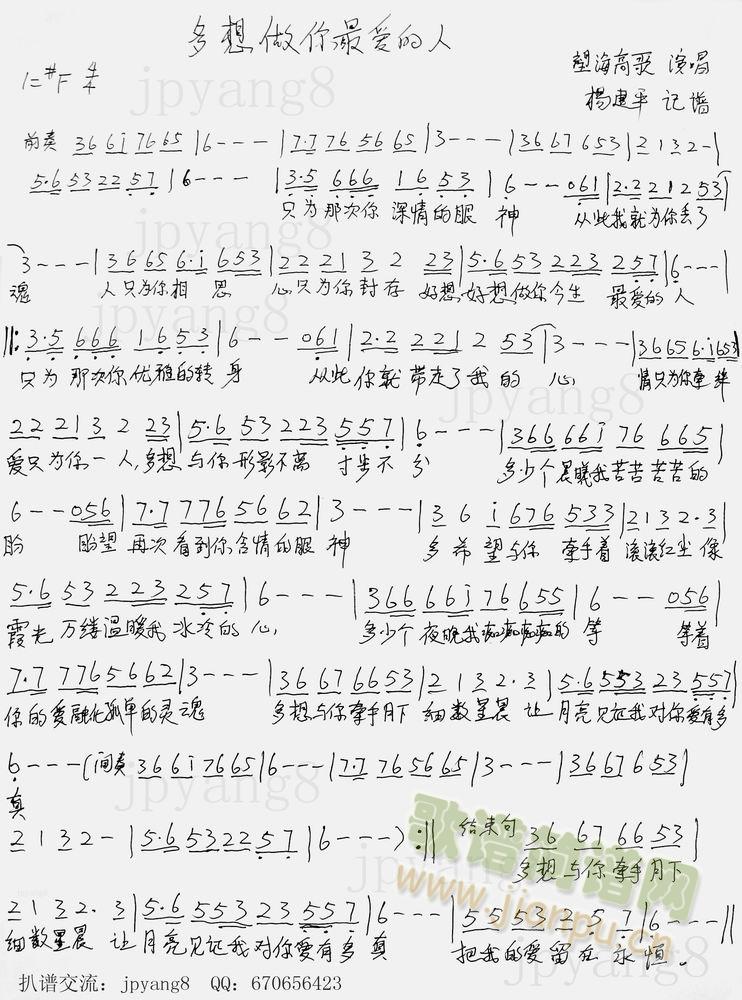 多想做你最爱的人
1=#F 4/4
望海高歌 演唱
杨建平 记谱
前奏 3 6 6 i 7 6 6 5 | 6 - - - | 7·7 7 6 5 6 6 5 | 3 - - - | 3 6 6 7 6 5 3 | 2 1 3 2 - |
5·6 5 3 2 2 5 7 | 6 - - - | 3·5 6 6 6 1 6 5 3 | 6 - - 0 6 1 | 2·2 2 1 2 5 3 |
只为那次你 深情的眼 神 从此我就为你丢了
3 - - - | 3 6 6 5 6·i 6 5 3 | 2 2 2 1 3 2 2 3 | 5·6 5 3 2 2 3 2 5 7 | 6 - - - |
魂 人只为你相 思 心只为你封存 好想好想做你今生 最爱的人
‖: 3·5 6 6 6 1 6 5 3 | 6 - - 0 6 1 | 2·2 2 2 1 2 5 3 | 3 - - - | 3 6 6 5 6·i 6 5 3 |
只为 那次你优雅的转 身 从此 你就 带走了我 的 心 情只为你牵绊
2 2 2 1 3 2 2 3 | 5·6 5 3 2 2 3 5 5 7 | 6 - - - | 3 6 6 6 6 i 7 6 6 6 5 |
爱只为你一 人,多想 与你形影不离 寸步不 分 多少个晨曦我苦苦苦苦的
6 - - 0 5 6 | 7·7 7 7 6 5 6 6 2 | 3 - - - | 3 6 i 6 7 6 5 3 3 | 2 1 3 2·3 |
盼 盼望 再次看到你含情的眼 神 多希 望与你 牵手着 滚滚红尘 像
5·6 5 3 2 2 3 2 5 7 | 6 - - - | 3 6 6 6 6 i 7 6 6 5 5 | 6 - - 0 5 6 |
霞光 万缕温暖我 冰冷的 心, 多少个 夜晚我痴痴痴痴的 等 等着
7·7 7 7 6 5 6 6 2 | 3 - - - | 3 6 6 7 6 6 5 3 | 2 1 3 2·3 | 5·6 5 5 3 2 3 5 5 7 |
你的爱融化孤单的灵魂 多想与你牵手月下 细数星晨 让月亮见证我对你爱有多
6 - - - (间奏 3 6 6 i 7 6 6 5 | 6 - - - | 7·7 7 6 5 6 6 5 | 3 - - - | 3 6 6 7 6 5 3 |
真
2 1 3 2 - | 5·6 5 3 2 2 5 7 | 6 - - - ) :‖ 结束句 3 6 6 7 6 6 5 3 |
多想与你牵手月下
2 1 3 2· 3 | 5·6 5 5 3 2 3 5 5 7 | 6 - - - | 5 5 5 3 2 5· 7 | 6 - - - ‖
细数星晨 让月亮见证我对你爱有多 真 把我的爱留在 永 恒。
歌谱简谱网
www.jianpu.cn
扒谱交流: jpyang8 QQ: 670656423
jpyang8